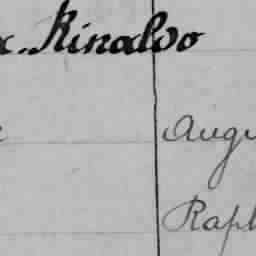 x. Rinaldo
Augu
Raph